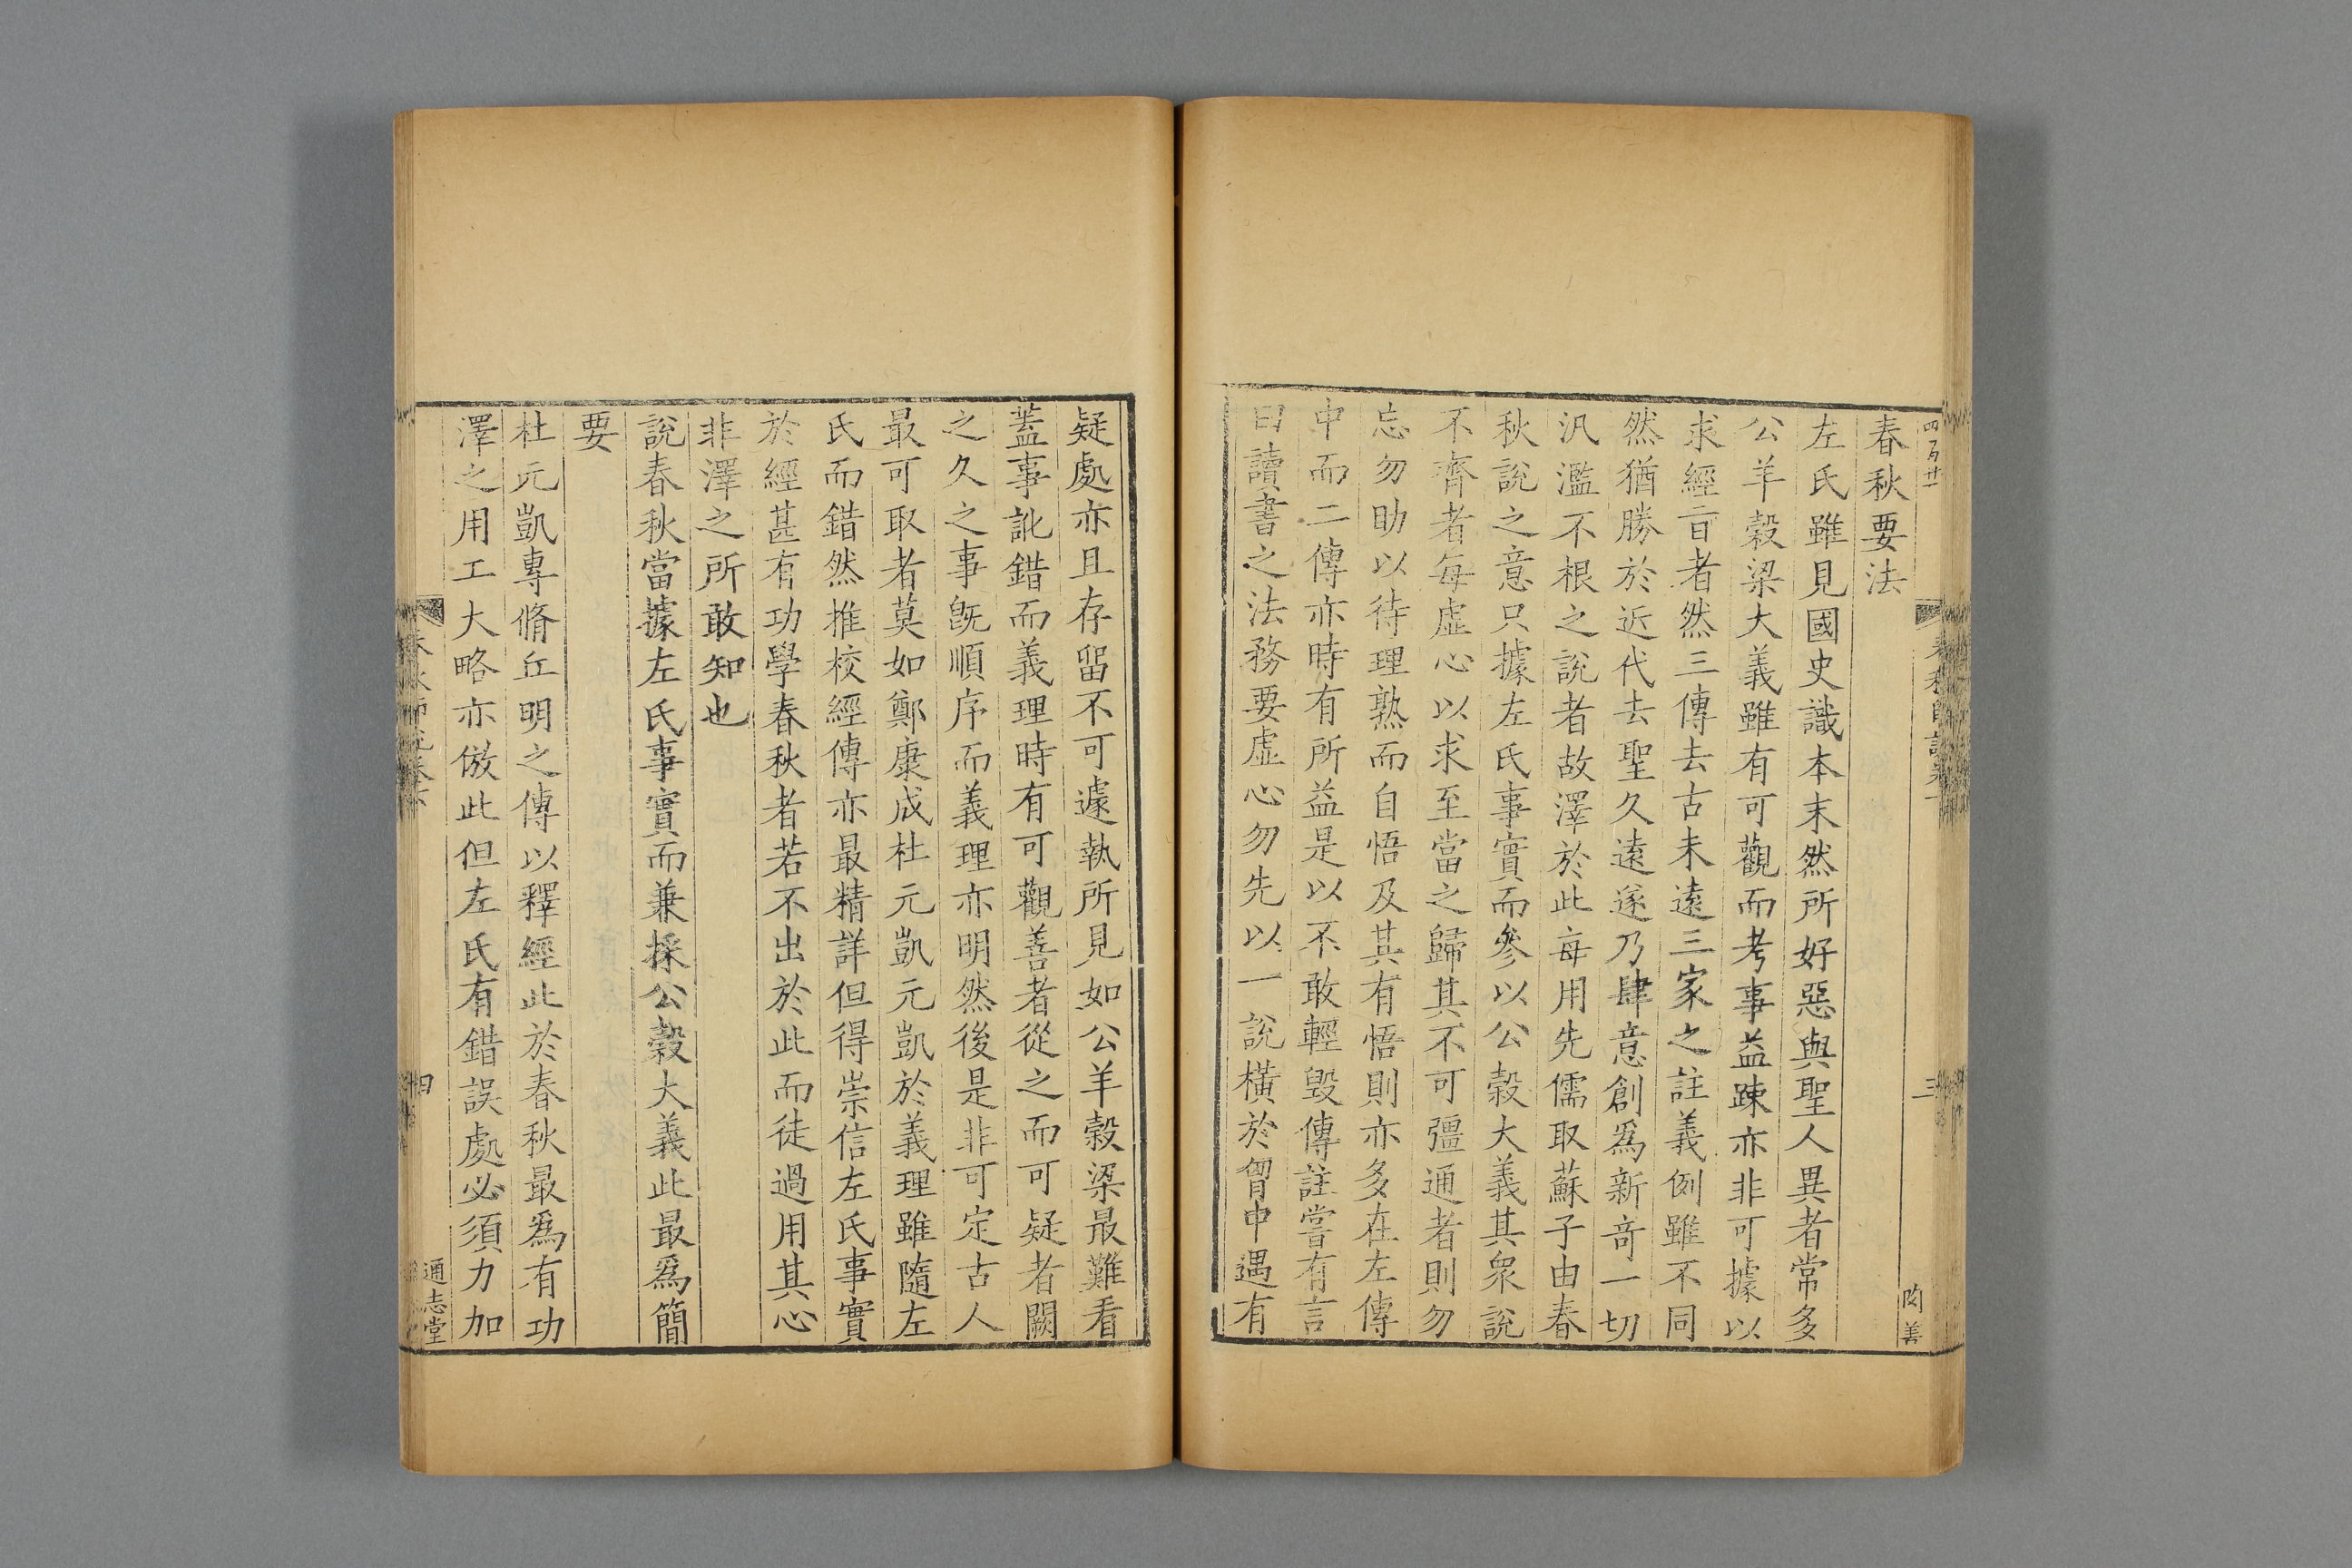 四百廿一
三
春秋要法
左氏雖見國史識本末然所好惡與聖人異者常多
公羊穀梁大義雖有可觀而考事益踈亦非可據以
求經㫖者然三傳去古未遠三家之註義例雖不同
然猶勝於近代去聖久遠遂乃肆意創爲新奇一切
汎濫不根之說者故澤於此每用先儒取蘇子由春
秋說之意只據左氏事實而參以公穀大義其衆說
不齊者每虛心以求至當之歸其不可彊通者則勿
忘勿助以待理熟而自悟及其有悟則亦多在左傳
中而二傳亦時有所益是以不敢輕毀傳註嘗有言
曰讀書之法務要虛心勿先以一說橫於胷中遇有
疑處亦且存留不可遽執所見如公羊穀梁最難看
蓋事訛錯而義理時有可觀善者從之而可疑者闕
之久之事旣順序而義理亦明然後是非可定古人
最可取者莫如鄭康成杜元凱元凱於義理雖隨左
氏而錯然推校經傳亦最精詳但得崇信左氏事實
於經甚有功學春秋者若不出於此而徒過用其心
非澤之所敢知也
說春秋當據左氏事實而兼採公穀大義此最爲簡
要
杜元凱專脩丘明之傳以釋經此於春秋最爲有功
澤之用工大略亦倣此但左氏有錯誤處必須力加
四
通志堂